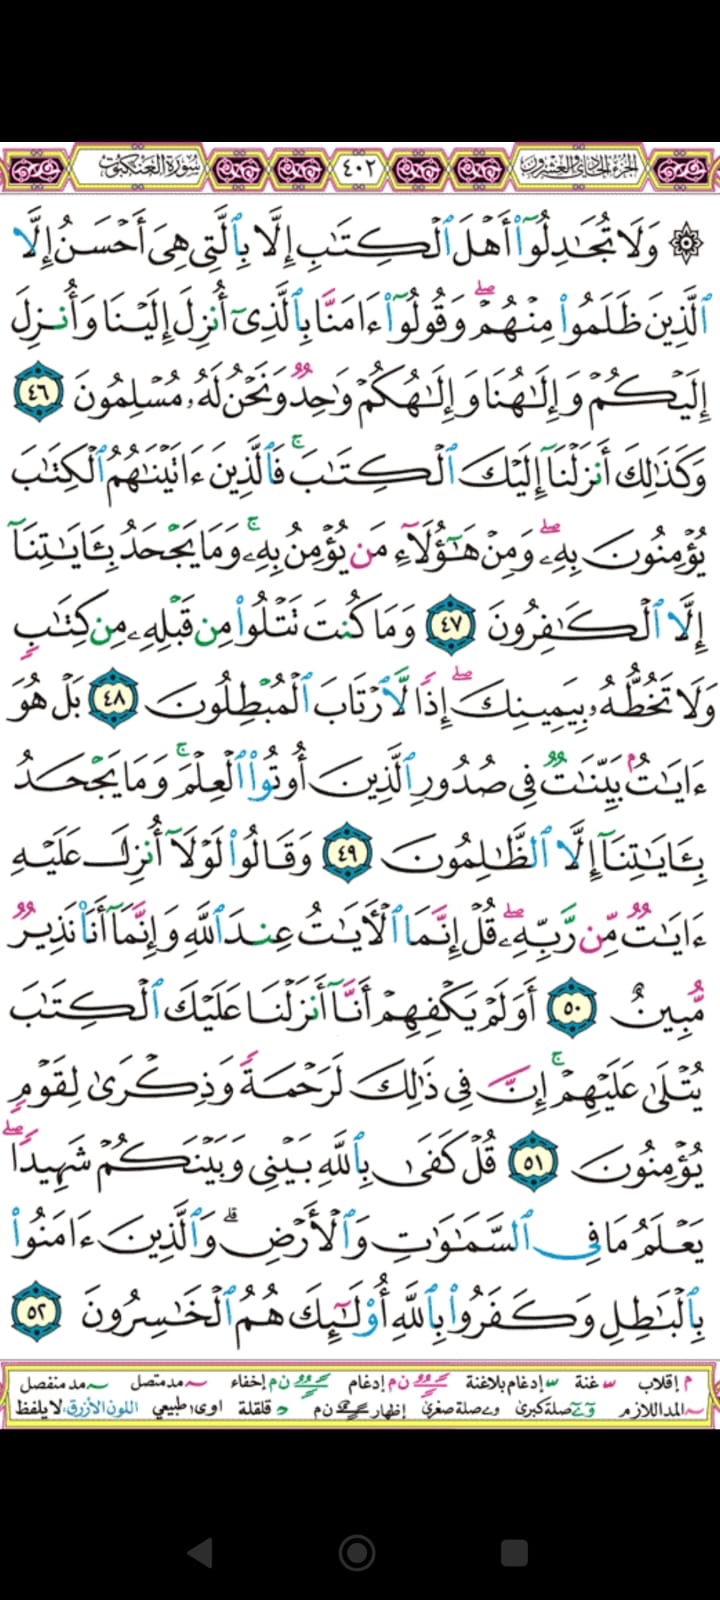 الجزء الحادي والعشرون ٤٠٢ سورة العنكبوت
۞ وَلَا تُجَٰدِلُوٓا۟ أَهْلَ ٱلْكِتَٰبِ إِلَّا بِٱلَّتِى هِىَ أَحْسَنُ إِلَّا
ٱلَّذِينَ ظَلَمُوا۟ مِنْهُمْ ۖ وَقُولُوٓا۟ ءَامَنَّا بِٱلَّذِىٓ أُنزِلَ إِلَيْنَا وَأُنزِلَ
إِلَيْكُمْ وَإِلَٰهُنَا وَإِلَٰهُكُمْ وَٰحِدٌ وَنَحْنُ لَهُۥ مُسْلِمُونَ ٤٦
وَكَذَٰلِكَ أَنزَلْنَآ إِلَيْكَ ٱلْكِتَٰبَ ۚ فَٱلَّذِينَ ءَاتَيْنَٰهُمُ ٱلْكِتَٰبَ
يُؤْمِنُونَ بِهِۦ ۖ وَمِنْ هَٰٓؤُلَآءِ مَن يُؤْمِنُ بِهِۦ ۚ وَمَا يَجْحَدُ بِـَٔايَٰتِنَآ
إِلَّا ٱلْكَٰفِرُونَ ٤٧ وَمَا كُنتَ تَتْلُوا۟ مِن قَبْلِهِۦ مِن كِتَٰبٍ
وَلَا تَخُطُّهُۥ بِيَمِينِكَ ۖ إِذًا لَّٱرْتَابَ ٱلْمُبْطِلُونَ ٤٨ بَلْ هُوَ
ءَايَٰتٌۢ بَيِّنَٰتٌ فِى صُدُورِ ٱلَّذِينَ أُوتُوا۟ ٱلْعِلْمَ ۚ وَمَا يَجْحَدُ
بِـَٔايَٰتِنَآ إِلَّا ٱلظَّٰلِمُونَ ٤٩ وَقَالُوا۟ لَوْلَآ أُنزِلَ عَلَيْهِ
ءَايَٰتٌ مِّن رَّبِّهِۦ ۖ قُلْ إِنَّمَا ٱلْـَٔايَٰتُ عِندَ ٱللَّهِ وَإِنَّمَآ أَنَا۠ نَذِيرٌ
مُّبِينٌ ٥٠ أَوَلَمْ يَكْفِهِمْ أَنَّآ أَنزَلْنَا عَلَيْكَ ٱلْكِتَٰبَ
يُتْلَىٰ عَلَيْهِمْ ۚ إِنَّ فِى ذَٰلِكَ لَرَحْمَةً وَذِكْرَىٰ لِقَوْمٍ
يُؤْمِنُونَ ٥١ قُلْ كَفَىٰ بِٱللَّهِ بَيْنِى وَبَيْنَكُمْ شَهِيدًا ۖ
يَعْلَمُ مَا فِى ٱلسَّمَٰوَٰتِ وَٱلْأَرْضِ ۗ وَٱلَّذِينَ ءَامَنُوا۟
بِٱلْبَٰطِلِ وَكَفَرُوا۟ بِٱللَّهِ أُو۟لَٰٓئِكَ هُمُ ٱلْخَٰسِرُونَ ٥٢
م إقلاب غنة إدغام بلاغنة ن م إدغام ن م إخفاء مد متصل مد منفصل
المد اللازم صلة كبرى صلة صغرى إظهار ن م قلقلة اوى طبيعي اللون الأزرق: لا يلفظ